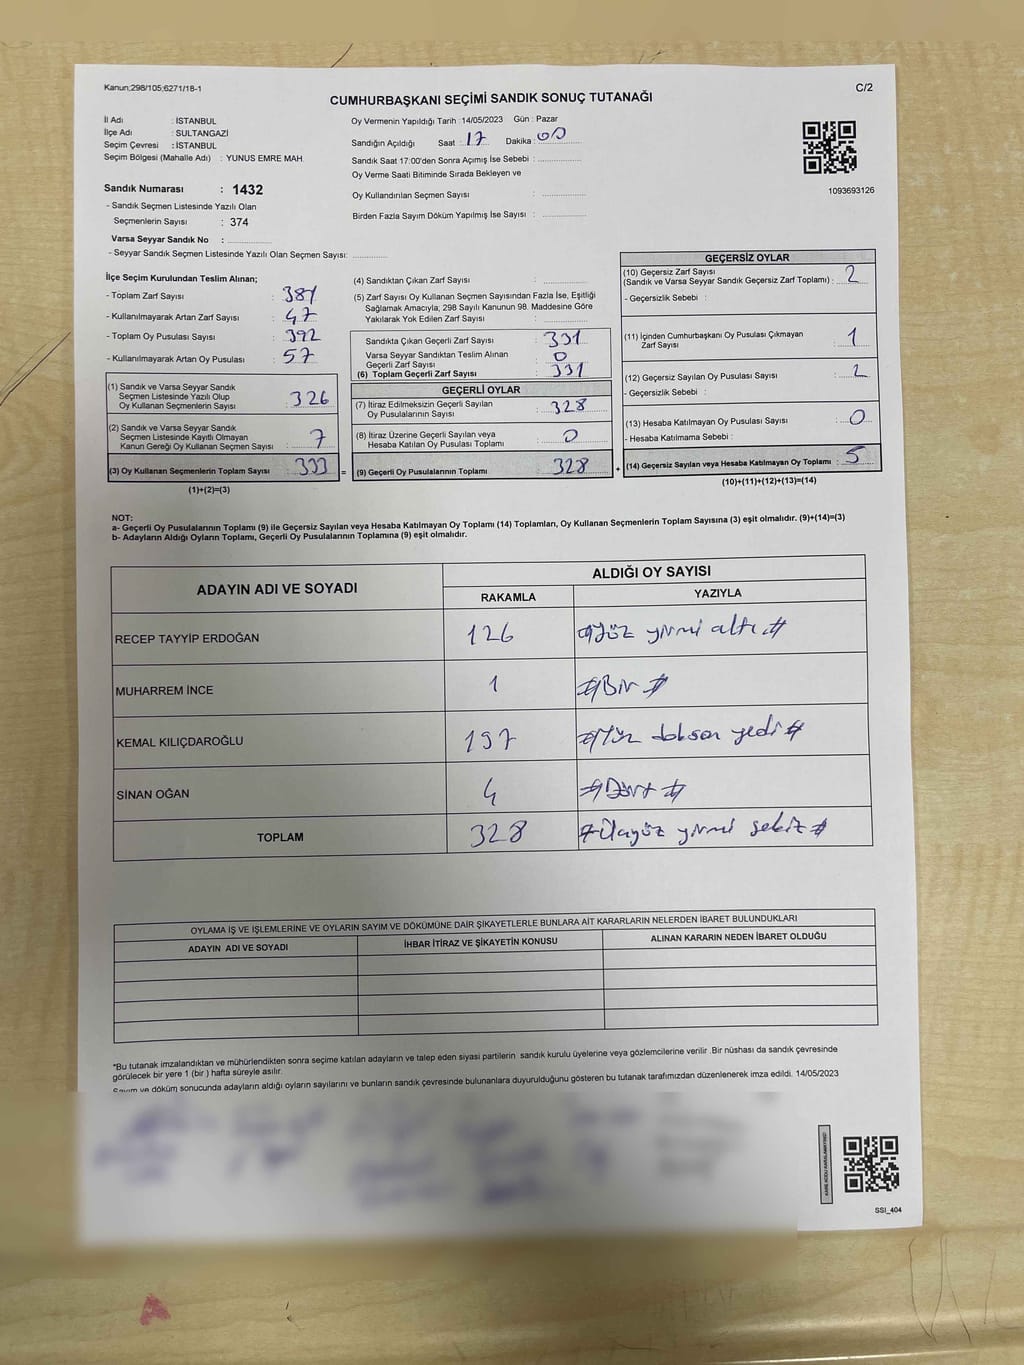 Kanun;298/105;6271/18-1
C/2
CUMHURBAŞKANI SEÇİMİ SANDIK SONUÇ TUTANAĞI
İl Adı : İSTANBUL
İlçe Adı : SULTANGAZİ
Seçim Çevresi : İSTANBUL
Seçim Bölgesi (Mahalle Adı) : YUNUS EMRE MAH.
Sandık Numarası : 1432
- Sandık Seçmen Listesinde Yazılı Olan
Seçmenlerin Sayısı : 374
Varsa Seyyar Sandık No : ..............
- Seyyar Sandık Seçmen Listesinde Yazılı Olan Seçmen Sayısı: ..............
Oy Vermenin Yapıldığı Tarih : 14/05/2023 Gün : Pazar
Sandığın Açıldığı Saat : 17 Dakika : 00
Sandık Saat 17:00'den Sonra Açımış İse Sebebi : ..............
Oy Verme Saati Bitiminde Sırada Bekleyen ve
Oy Kullandırılan Seçmen Sayısı : ..............
Birden Fazla Sayım Döküm Yapılmış İse Sayısı : ..............
1093693126
İlçe Seçim Kurulundan Teslim Alınan;
- Toplam Zarf Sayısı : 381
- Kullanılmayarak Artan Zarf Sayısı : 47
- Toplam Oy Pusulası Sayısı : 392
- Kullanılmayarak Artan Oy Pusulası : 57
(1) Sandık ve Varsa Seyyar Sandık
Seçmen Listesinde Yazılı Olup
Oy Kullanan Seçmenlerin Sayısı : 326
(2) Sandık ve Varsa Seyyar Sandık
Seçmen Listesinde Kayıtlı Olmayan
Kanun Gereği Oy Kullanan Seçmen Sayısı : 7
(3) Oy Kullanan Seçmenlerin Toplam Sayısı : 333 =
(1)+(2)=(3)
(4) Sandıktan Çıkan Zarf Sayısı : ..............
(5) Zarf Sayısı Oy Kullanan Seçmen Sayısından Fazla İse, Eşitliği
Sağlamak Amacıyla, 298 Sayılı Kanunun 98. Maddesine Göre
Yakılarak Yok Edilen Zarf Sayısı : ..............
Sandıkta Çıkan Geçerli Zarf Sayısı : 331
Varsa Seyyar Sandıktan Teslim Alınan
Geçerli Zarf Sayısı : 0
(6) Toplam Geçerli Zarf Sayısı : 331
GEÇERLİ OYLAR
(7) İtiraz Edilmeksizin Geçerli Sayılan
Oy Pusulalarının Sayısı : 328
(8) İtiraz Üzerine Geçerli Sayılan veya
Hesaba Katılan Oy Pusulası Toplamı : 0
(9) Geçerli Oy Pusulalarının Toplamı : 328 +
GEÇERSİZ OYLAR
(10) Geçersiz Zarf Sayısı
(Sandık ve Varsa Seyyar Sandık Geçersiz Zarf Toplamı) : 2
- Geçersizlik Sebebi :
(11) İçinden Cumhurbaşkanı Oy Pusulası Çıkmayan
Zarf Sayısı : 1
(12) Geçersiz Sayılan Oy Pusulası Sayısı : 2
- Geçersizlik Sebebi :
(13) Hesaba Katılmayan Oy Pusulası Sayısı : 0
- Hesaba Katılmama Sebebi :
(14) Geçersiz Sayılan veya Hesaba Katılmayan Oy Toplamı : 5
(10)+(11)+(12)+(13)=(14)
NOT:
a- Geçerli Oy Pusulalarının Toplamı (9) ile Geçersiz Sayılan veya Hesaba Katılmayan Oy Toplamı (14) Toplamları, Oy Kullanan Seçmenlerin Toplam Sayısına (3) eşit olmalıdır. (9)+(14)=(3)
b- Adayların Aldığı Oyların Toplamı, Geçerli Oy Pusulalarının Toplamına (9) eşit olmalıdır.
ADAYIN ADI VE SOYADI
ALDIĞI OY SAYISI
RAKAMLA YAZIYLA
RECEP TAYYİP ERDOĞAN 126 #Yüz yirmi altı#
MUHARREM İNCE 1 #Bir#
KEMAL KILIÇDAROĞLU 197 #Yüz doksan yedi#
SİNAN OĞAN 4 #Dört#
TOPLAM 328 #Üçyüz yirmi sekiz#
OYLAMA İŞ VE İŞLEMLERİNE VE OYLARIN SAYIM VE DÖKÜMÜNE DAİR ŞİKAYETLERLE BUNLARA AİT KARARLARIN NELERDEN İBARET BULUNDUKLARI
ADAYIN ADI VE SOYADI İHBAR İTİRAZ VE ŞİKAYETİN KONUSU ALINAN KARARIN NEDEN İBARET OLDUĞU
*Bu tutanak imzalandıktan ve mühürlendikten sonra seçime katılan adayların ve talep eden siyasi partilerin sandık kurulu üyelerine veya gözlemcilerine verilir .Bir nüshası da sandık çevresinde
görülecek bir yere 1 (bir ) hafta süreyle asılır.
Sayım ve döküm sonucunda adayların aldığı oyların sayılarını ve bunların sandık çevresinde bulunanlara duyurulduğunu gösteren bu tutanak tarafımızdan düzenlenerek imza edildi. 14/05/2023
SSI_404